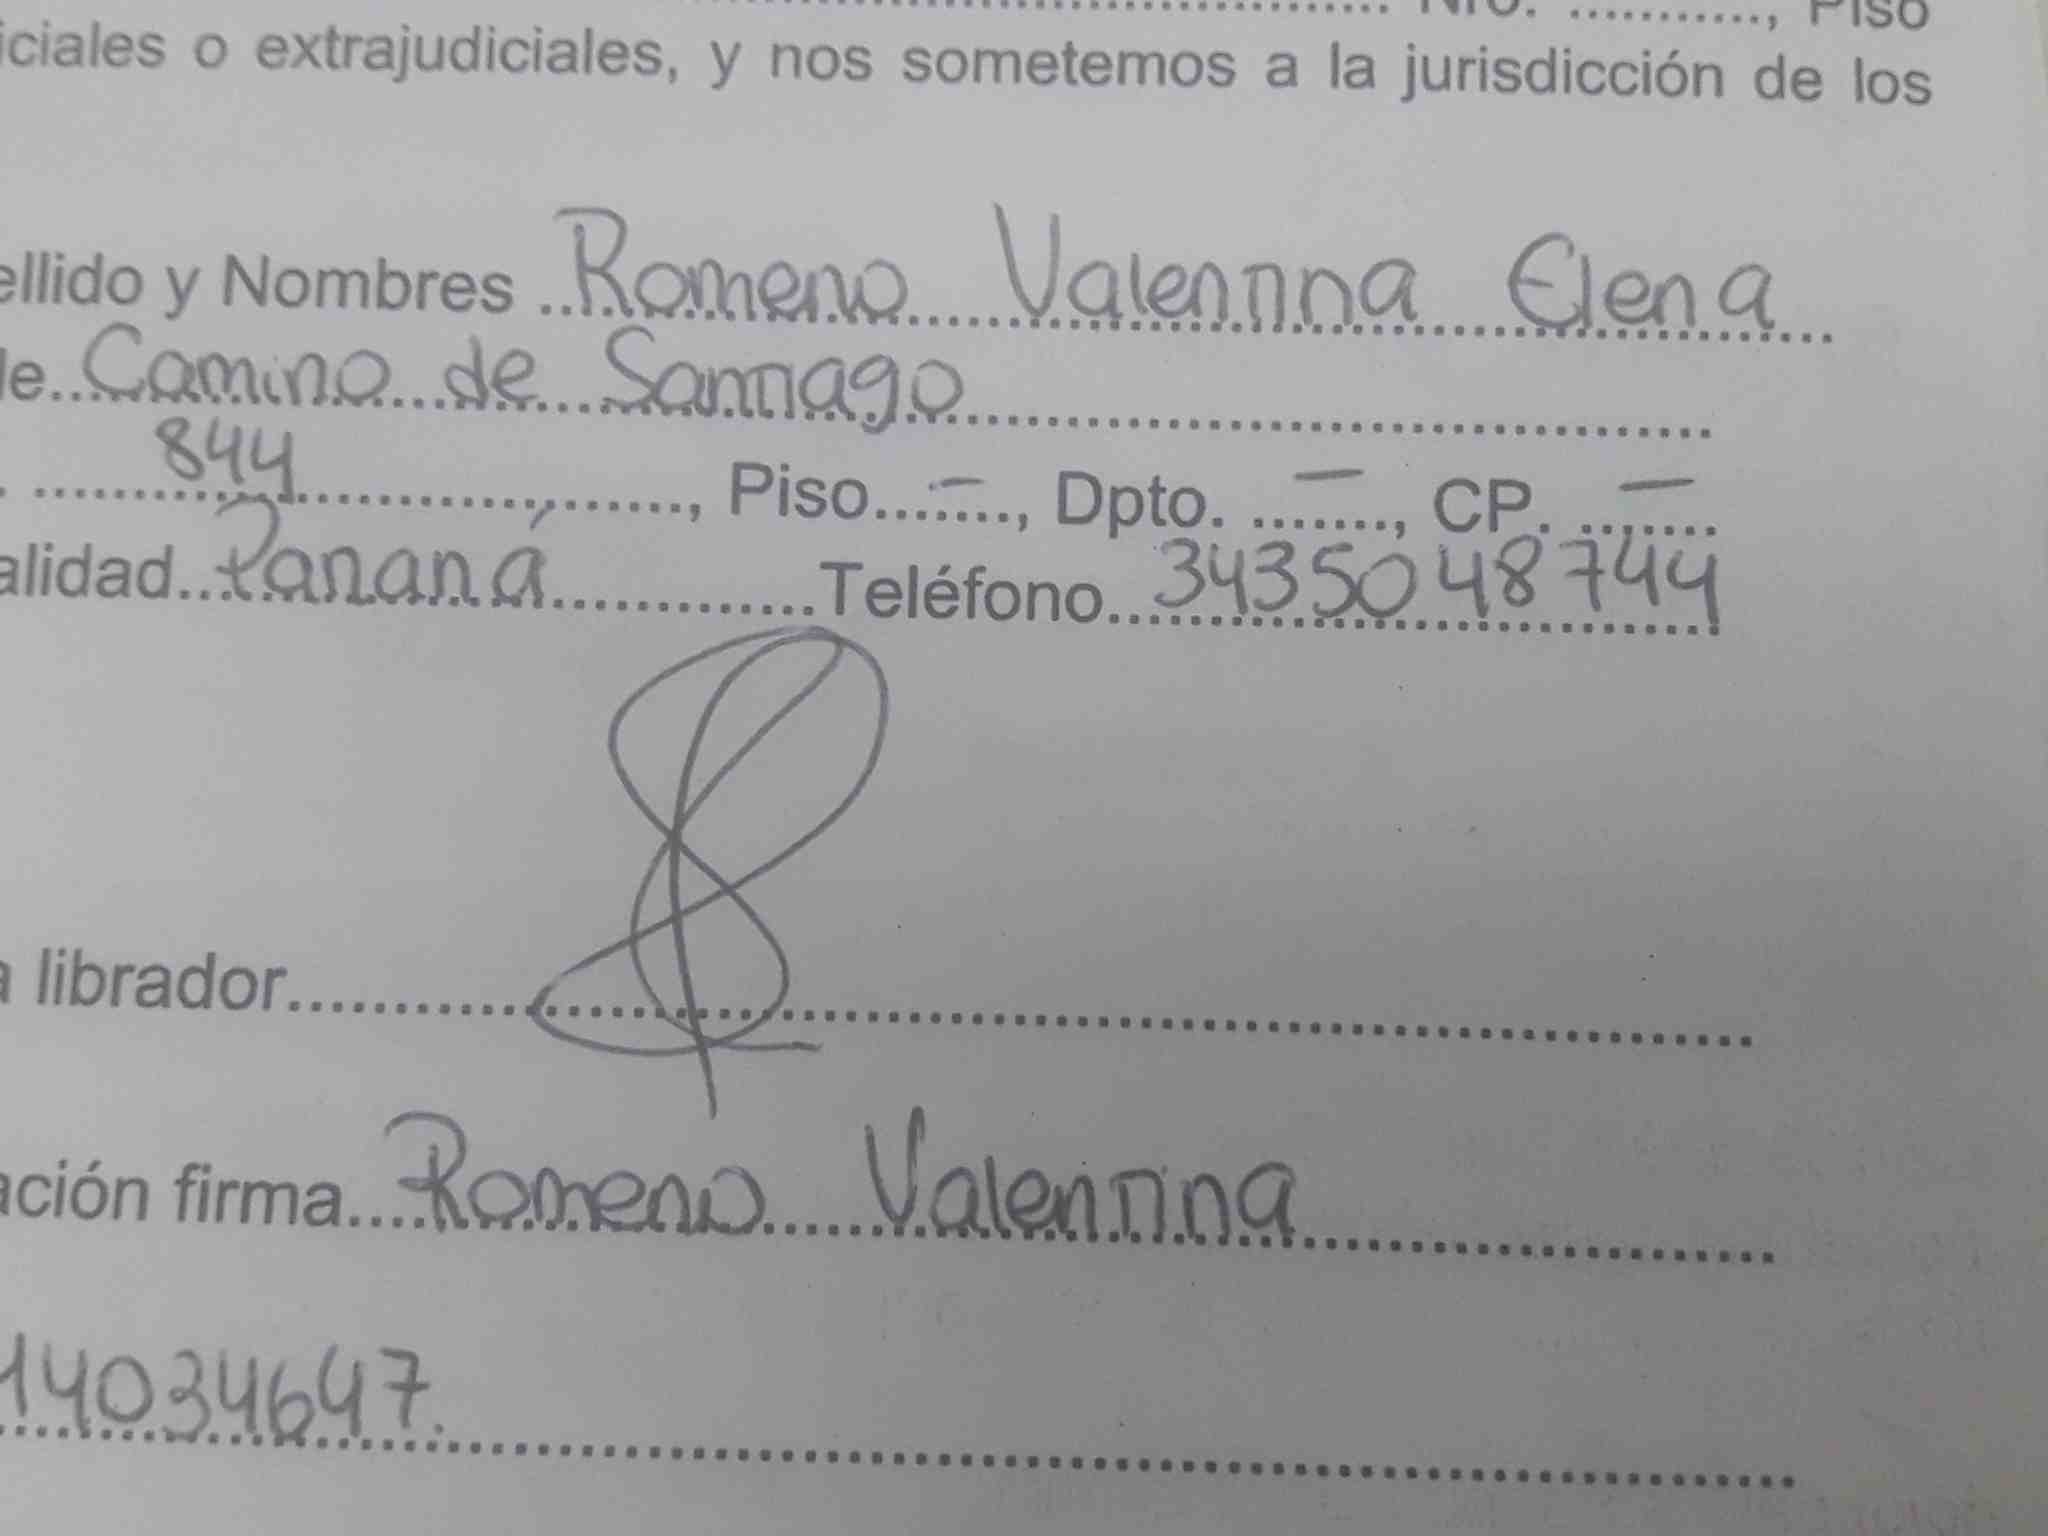 Nro. ..........., Piso
iciales o extrajudiciales, y nos sometemos a la jurisdicción de los
ellido y Nombres Romero Valentina Elena
le Camino de Santiago
844, Piso -, Dpto. -, CP. -
alidad Paraná Teléfono 3435048744
a librador
ación firma Romero Valentina
14034647.